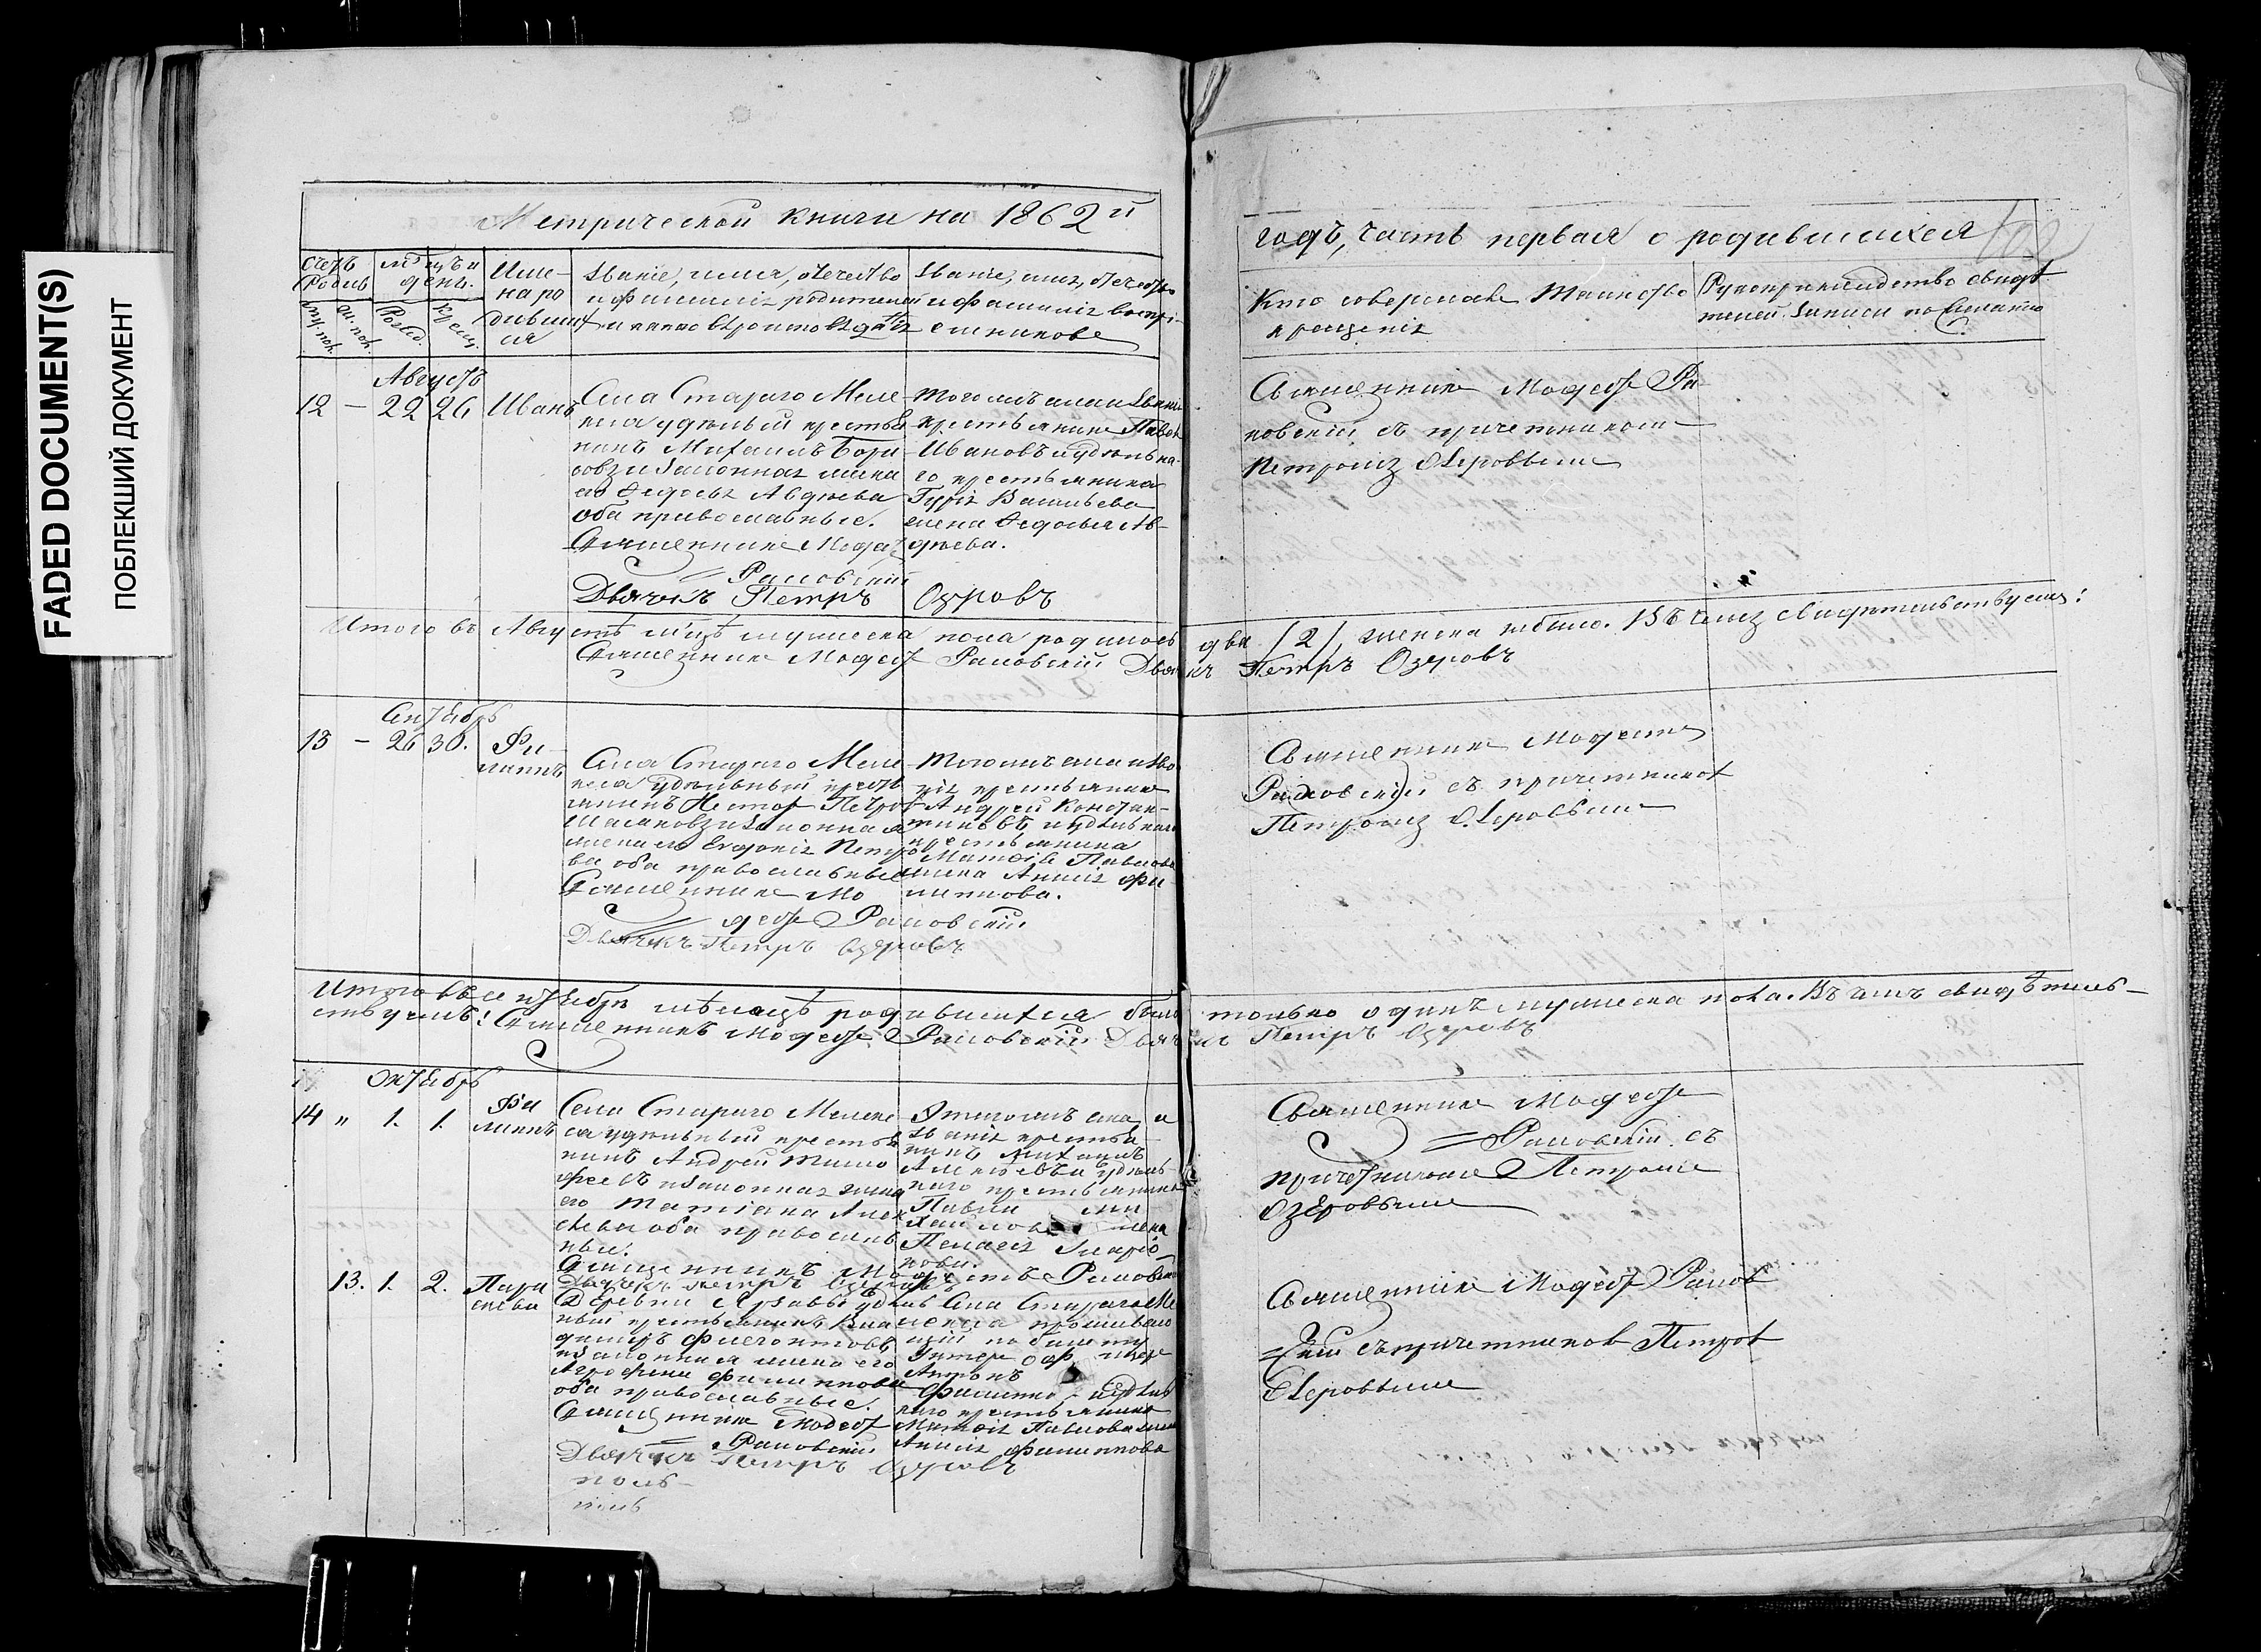 FADED DOCUMENT(S)
ПОБЛЕКШИЙ ДОКУМЕНТ
Метрической книги на 1862й
годъ, часть первая о родившихся
Счетъ Родив
муж. пол. жен. пол.
мѣсяцъ и день.
Рожд. Крещ.
Имена родившихся
Званіе, имя, отечество
и фамилія родителей
и какого вѣроисповѣданія
Званіе, имя, отечество
и фамилія воспрі-
емниковъ
Кто совершалъ таинство
крещенія
Рукоприкладство свидѣ
телей записи по желанію
Августъ
12 - 22 26 Иванъ
Села Стараго Меле
кеса удѣльный крестья
нинъ Михаилъ Бори
совъ и законная жена
его Ѳедосья Авдѣева
оба православные.
Священникъ Модестъ
Рановскій
Дьячекъ Петръ Озеровъ
Тогожъ села и званія
крестьянинъ Павелъ
Ивановъ и удѣльна-
го крестьянина
Гурія Васильева
жена Ѳедосья Ав-
дѣева.
Священникъ Модестъ Ра
новскій съ причетникомъ
Петромъ Озеровымъ
Итого въ Августѣ м-цѣ мужеска пола родилось два /2/, женска не было. Въ чемъ свидѣтельствуемъ:
Священникъ Модестъ Рановскій Дьячекъ Петръ Озеровъ
Сентябрь
13 - 26 30. Фи-
липпъ
Села Стараго Меле
кеса удѣльный кресть
янинъ Несторъ Петровъ
и законная
жена его Евдокія Петро
ва оба православные
Священникъ Мо
дестъ Рановскій
Дьячекъ Петръ Озеровъ
Тогожъ села и зва
нія крестьянинъ
Андрей Констан-
тиновъ и удѣльнаго
крестьянина
Матвія Павлова
жена Анисія Фи-
липпова.
Священникъ Модестъ
Рановскій съ причетникомъ
Петромъ Озеровымъ
Итого въ Сентябрѣ мѣсяцѣ родившихся былъ только одинъ мужеска пола. Въ чемъ свидѣтель-
ствуемъ: Священникъ Модестъ Рановскій Дьячекъ Петръ Озеровъ
Октябрь
14 " 1. 1. Фи
липпъ
Села Стараго Меле
кеса удѣльный крестья
нинъ Андрей Тимо
феевъ и законная жена
его Татіана Алек
сѣева оба православ
ные.
Священникъ Модестъ Рановскій
Дьячекъ Петръ Озеровъ
Тогожъ села и
званія крестья
нинъ Михаилъ
Алексѣевъ и удѣль-
наго крестьянина
Павла Ми
хайлова жена
Пелагія Иларіо
нова.
Священникъ Модестъ
Рановскій съ
причетникомъ Петромъ
Озеровымъ
13. 1. 2. Пара
скева
Деревни удѣль
ный крестьянинъ Вла
димиръ Флегонтовъ
и законная жена его
Агрофена Филиппова
оба православные.
Священникъ Модестъ
Рановскій
Дьячекъ Петръ Озеровъ
Села Стараго Ме
лекеса проживаю
щій по билету
Унтеръ офицеръ
Антонъ
Филиппо и удѣль
наго крестьянина
Матвія Павлова жена
Анисія Филиппова
Священникъ Модестъ Ранов
скій съ причетникомъ Петромъ
Озеровымъ